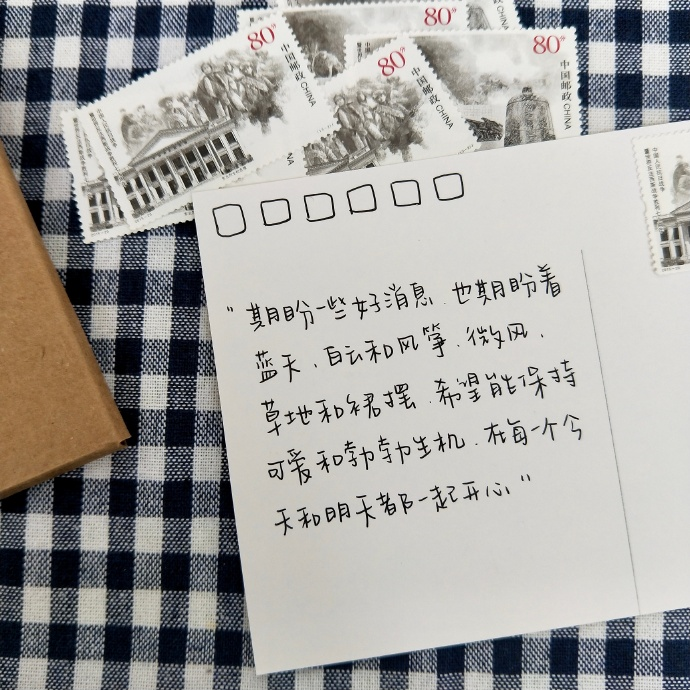 80分
中国邮政 CHINA
80分
80分
中国邮政 CHINA
80分
中国邮政 CHINA
CHINA
“期盼一些好消息.也期盼着
蓝天、白云和风筝.微风.
草地和裙摆.希望能保持
可爱和勃勃生机.在每一个今
天和明天都一起开心”